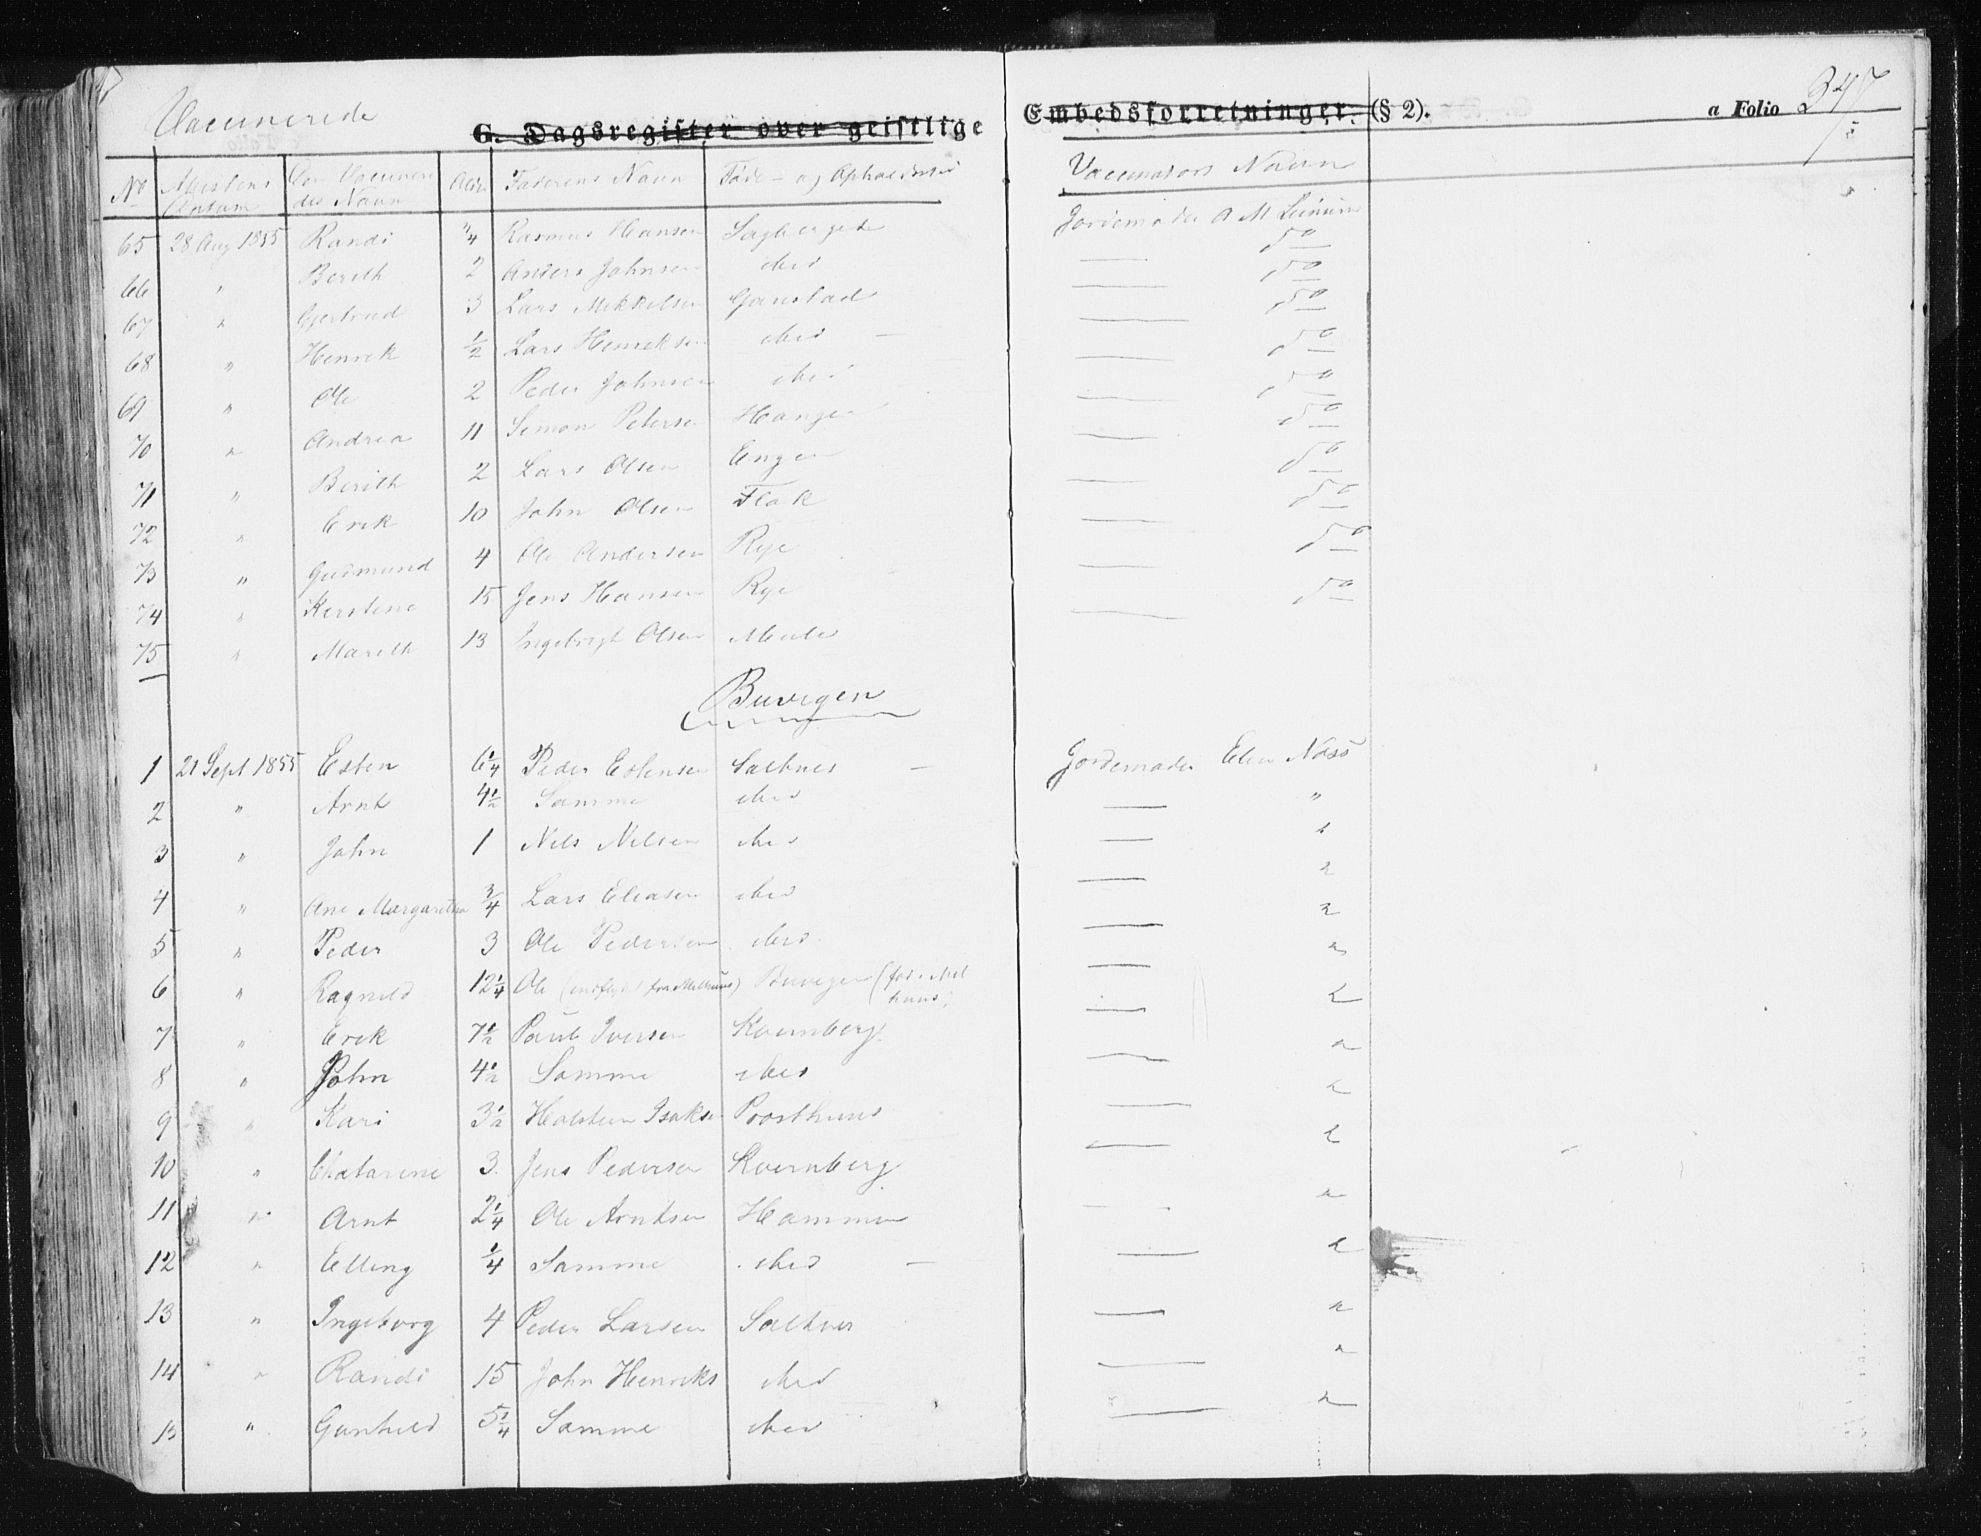 Vaccinerede
G. Dagsregister over geistlige Embedsforretninger. (§ 2). a Folio 347
No Attestens Datum Den Vaccinere des Navn Alder Faderens Navn Føde- og Opholdssted Vaccinators Navn
65 28 Aug 1855 Randi Rasmus Hansen Jordemoder
66 " Berith 2 Anders Johnsen ibid — do
67 " Gjertrud 3 Lars Mikkelsen Ganstad — do
68 " Henrik 1/2 Lars Henriksen ibid — do
69 " Ole 2 Peder Johnsen ibid — do
70 " Andrea 11 Simon Petersen Haugen — do
71 " Berith 2 Lars Olsen Engen — do
72 " Erik 10 John Olsen Flak — do
73 " Gudmund 4 Ole Andersen Rye — do
74 " Kirstine 15 Jens Hansen Rye — do
75 " Mareth 13 Ingebrigt Olsen — do
Buvigen
1 21 Sept 1855 Esten 6 1/4 Peder Estensen Saltnes — Jordemoder Elen Næss
2 " Arnt 4 1/2 Samme ibid — "
3 " John 1 Nils Nilsen ibid — "
4 " Ane Margaretha 3/4 Lars Eliasen ibid — "
5 " Peder 3 Ole Pedersen ibid — "
6 " Ragnild 12 1/4 Ole (indflyttet fra Melhuus) Buvigen (fød i Mel
huus) — "
7 " Erik 7 1/2 Paul Iversen Kvernberg — "
8 " John 4 1/2 Samme ibid — "
9 " Kari 3 1/2 Holsteen Isaksen Prosthuus — "
10 " Chatarine 3 Jens Pedersen Kvernberg — "
11 " Arnt 2 1/4 Ole Arntsen Hammen — "
12 " Elling 1/4 Samme ibid — "
13 " Ingeborg 4 Peder Larsen Saltnes — "
14 " Randi 15 John Henriks ibid — "
15 " Gunhild 5 1/4 Samme ibid — "